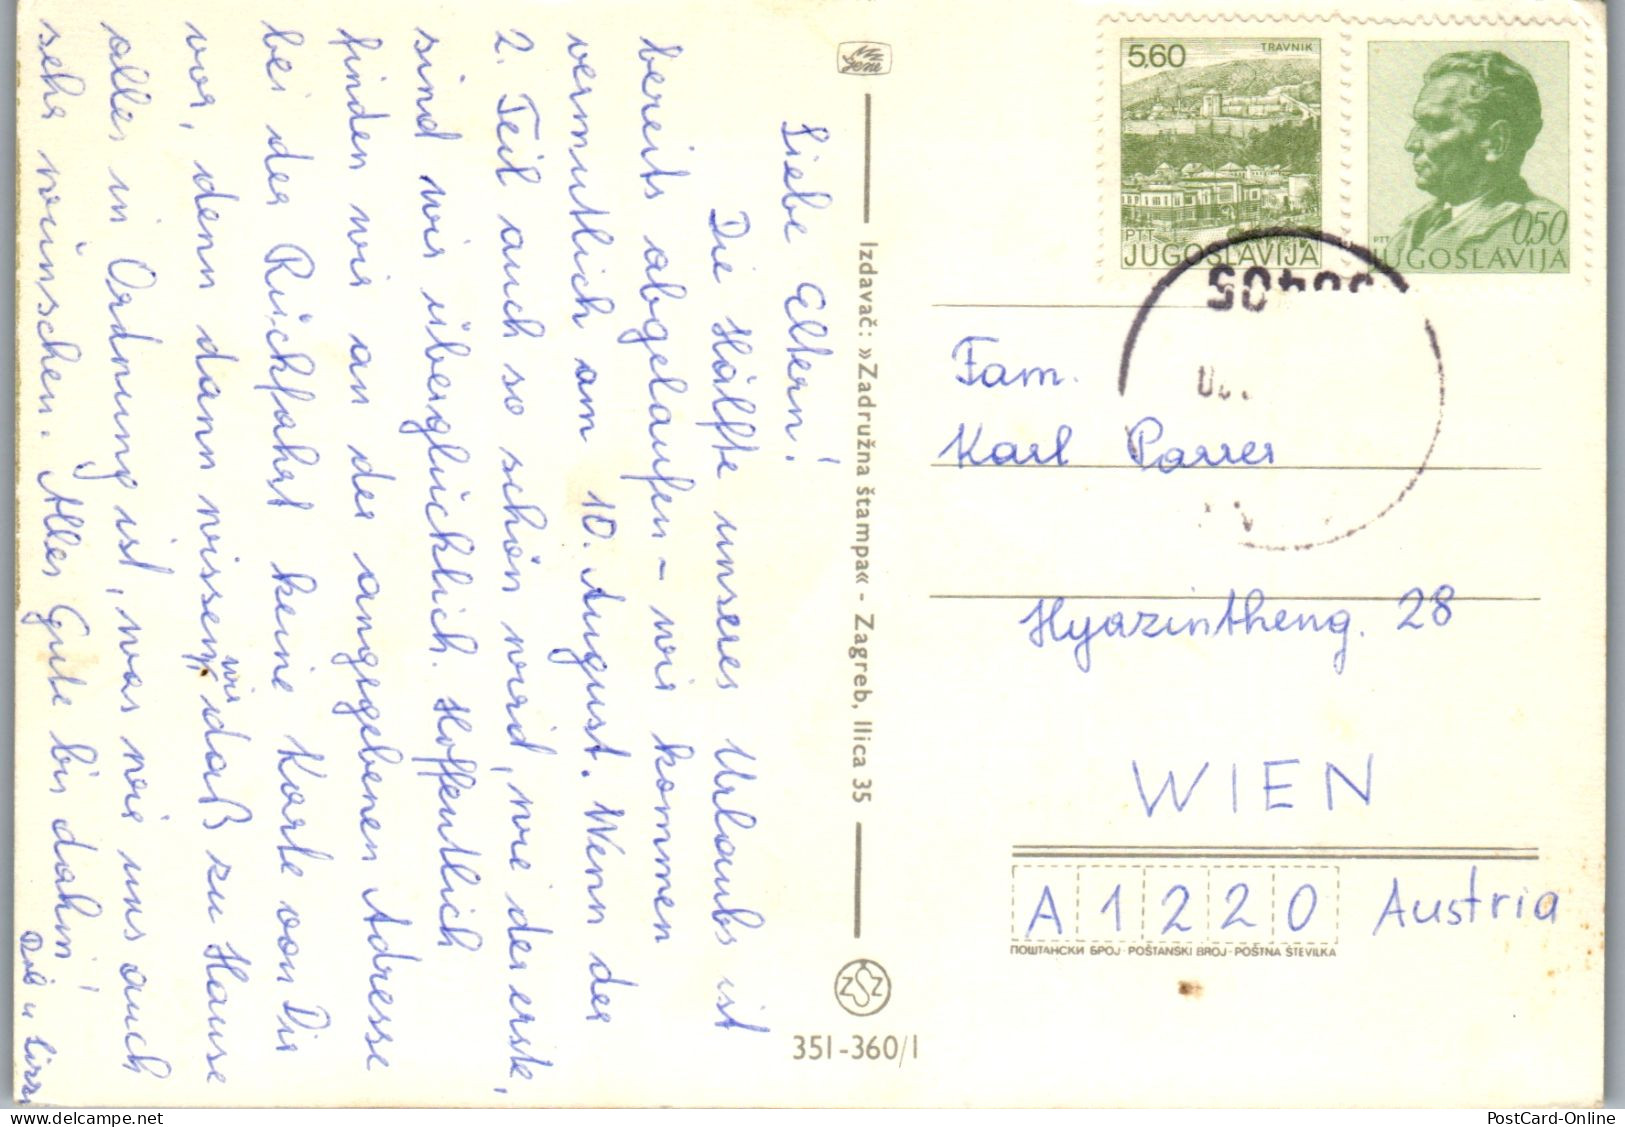 Liebe Eltern!
Die Hälfte unseres Urlaubs ist
bereits abgelaufen - wir kommen
vermutlich am 10. August. Wenn der
2. Teil auch so schön wird, wie der erste,
sind wir überglücklich. Hoffentlich
finden wir an der angegebenen Adresse
bei der Rückfahrt keine Karte von Dir
vor, denn dann wissen wir, daß zu Hause
alles in Ordnung ist, was wir uns auch
sehr wünschen. Alles Gute bis dahin!
Izdavač: »Zadružna štampa« - Zagreb, Ilica 35
ZSZ
351-360/1
5,60
TRAVNIK
PTT
JUGOSLAVIJA
0,50
PTT
JUGOSLAVIJA
Fam.
Karl Parrer
Hyazintheng. 28
WIEN
A 1220 Austria
ПОШТАНСКИ БРОЈ - POŠTANSKI BROJ - POŠTNA ŠTEVILKA
delcampe.net
PostCard-Online